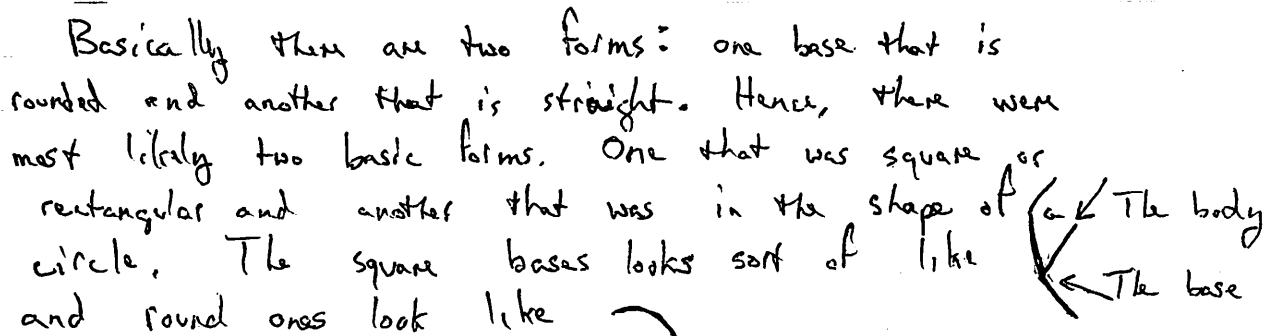 Basically there are two forms: one base that is
rounded and another that is straight. Hence, there were
most likely two basic forms. One that was square or
rectangular and another that was in the shape of a
circle. The square bases looks sort of like
and round ones look like
The body
The base